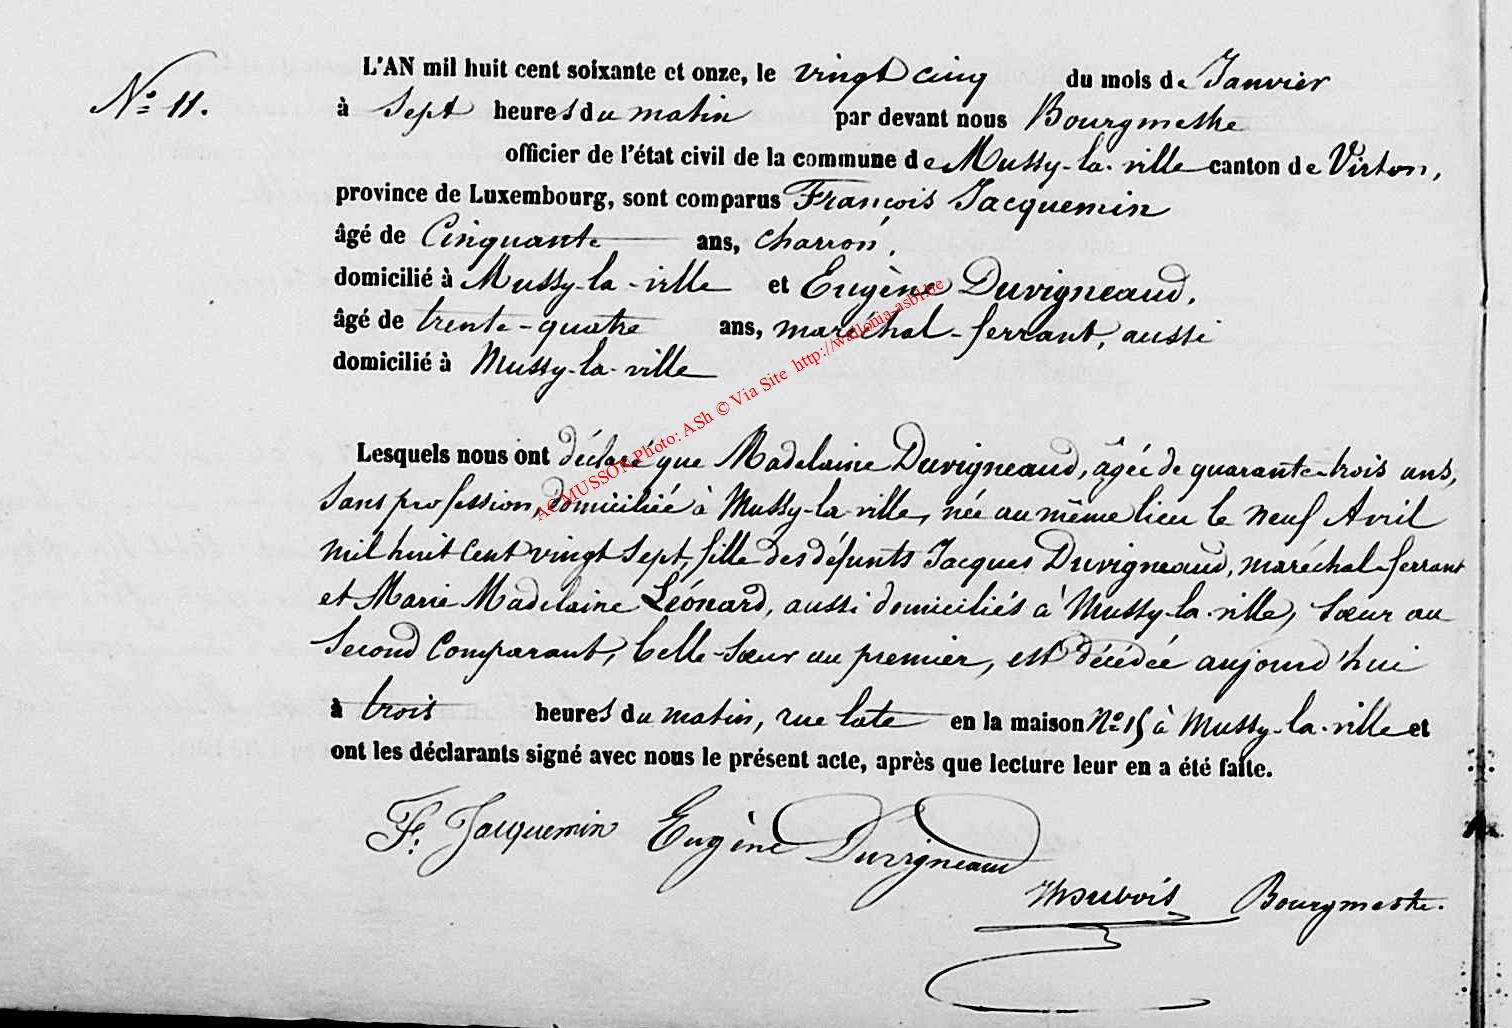 L'AN mil huit cent soixante et onze, le vingt cinq du mois de Janvier
N.º 11.
à Sept heures du matin par devant nous Bourgmestre
officier de l'état civil de la commune de Mussy-la-ville canton de Virton,
province de Luxembourg, sont comparus François Jacquemin
âgé de Cinquante ans, charron,
domicilié à Mussy-la-ville et Eugène Duvigneaud,
âgé de trente-quatre ans, maréchal-ferrant, aussi
domicilié à Mussy-la-ville
AC MUSSON Photo: ASh © Via Site http://wallonia-asbl.be
Lesquels nous ont déclaré que Madelaine Duvigneaud, âgée de quarante-trois ans,
Sans profession, domiciliée à Mussy-la-ville, née au même lieu le neuf Avril
mil huit Cent vingt Sept, fille des défunts Jacques Duvigneaud, maréchal-ferrant
et Marie Madelaine Léonard, aussi domiciliés à Mussy-la-ville, Sœur au
Second Comparant, belle-sœur au premier, est décédée aujourd'hui
à trois heures du matin, rue late en la maison Nº 15 à Mussy-la-ville et
ont les déclarants signé avec nous le présent acte, après que lecture leur en a été faite.
F. Jacquemin Eugène Duvigneaud
Dubois Bourgmestre.